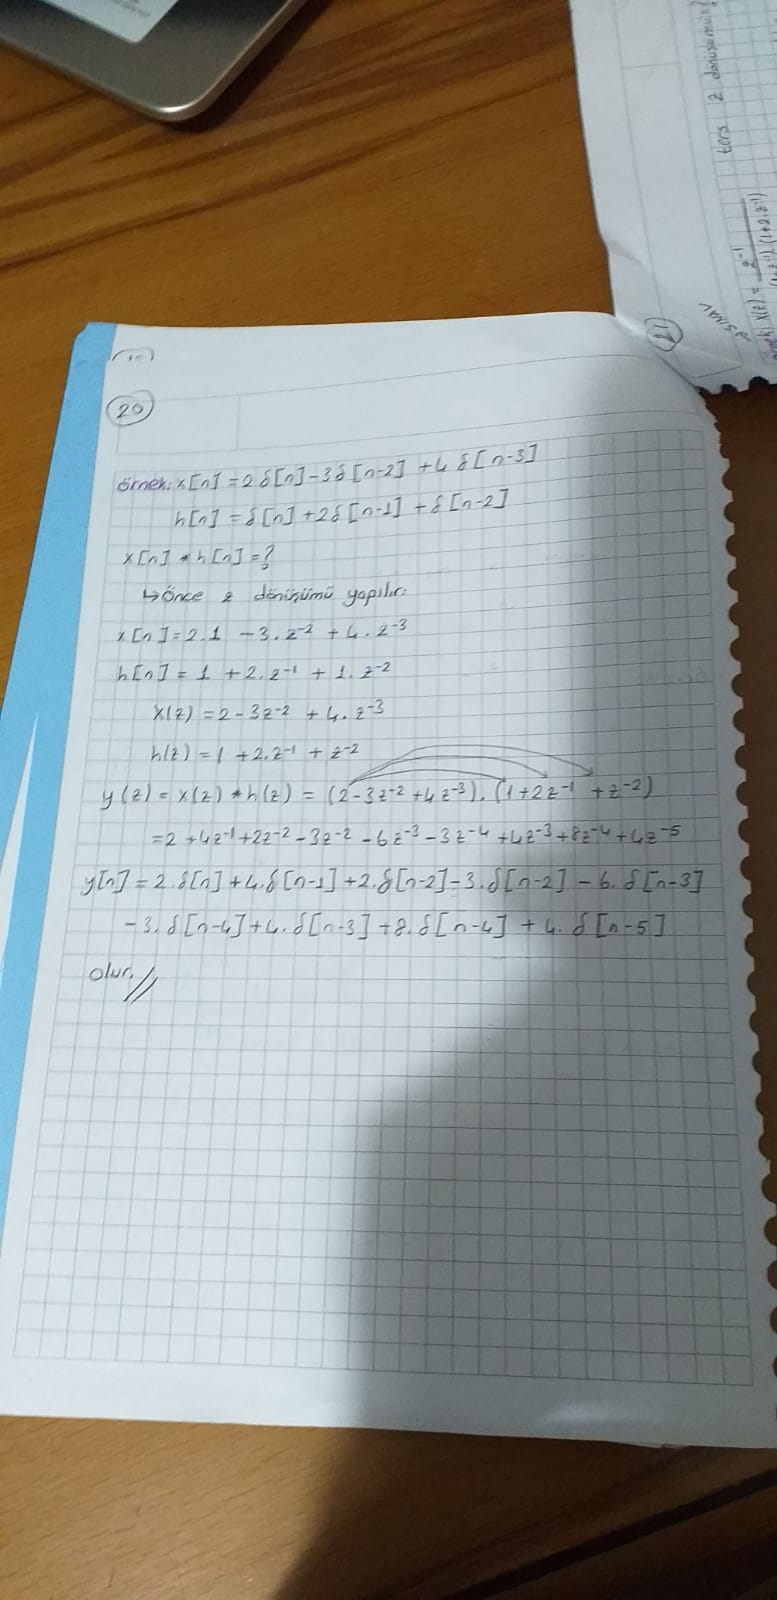 20
örnek: x[n] = 2δ[n]-3δ[n-2] +4δ[n-3]
h[n] = δ[n]+2δ[n-1]+δ[n-2]
x[n] * h[n] = ?
↳ Önce z dönüşümü yapılır.
x[n] = 2.1 -3.z⁻² +4.z⁻³
h[n] = 1 +2.z⁻¹ + 1.z⁻²
x(z) = 2-3z⁻² +4.z⁻³
h(z) = 1 +2.z⁻¹ + z⁻²
y(z) = x(z) * h(z) = (2-3z⁻²+4z⁻³).(1+2z⁻¹ +z⁻²)
=2 +4z⁻¹+2z⁻²-3z⁻² -6z⁻³-3z⁻⁴+4z⁻³+8z⁻⁴+4z⁻⁵
y[n] = 2.δ[n]+4.δ[n-1]+2.δ[n-2]-3.δ[n-2] -6.δ[n-3]
-3.δ[n-4]+4.δ[n-3]+8.δ[n-4] +4.δ[n-5]
olur.//
21
örnek: x(z) = z⁻¹
(1+2.z⁻¹)
ters z dönüşümü=?